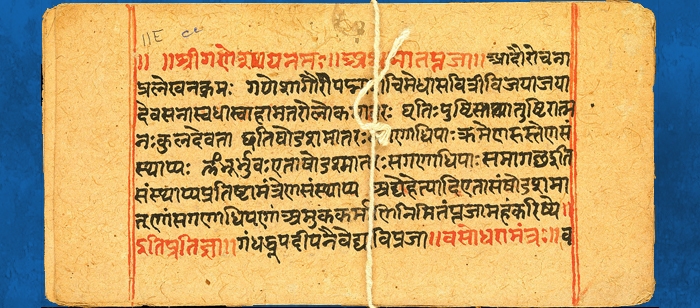 ॥E
॥ ॥श्रीगणेशायनमः॥अथमातृपूजा॥आदौरोचना
प्रलेखनक्रमः गणेशगौरीपद्माशचीमेधासावित्रीविजयाजया
देवसेनास्वधास्वाहामातरोलोकमातरः धृतिःपुष्टिस्तथातुष्टिरात्म
नःकुलदेवता इतिषोडशमातरः सगणाधिपाःक्रमेणहस्तेणसं
स्थाप्यः ॐभूर्भुवःएताषोडशमातरःसगणाधिपाःसमागछइति
संस्थाप्यप्रतिष्टामंत्रेणसंस्थाप्य अद्येहेत्यादिएतासंषोडशमा
तृणांसगणाधिपाणांअमुककर्मणिनिमितंपूजामहंकरिष्ये॥
इतिप्रतिज्ञा॥गंधधूपदीपनैवेद्यादिपूजा॥वसोधारामंत्रः॥व